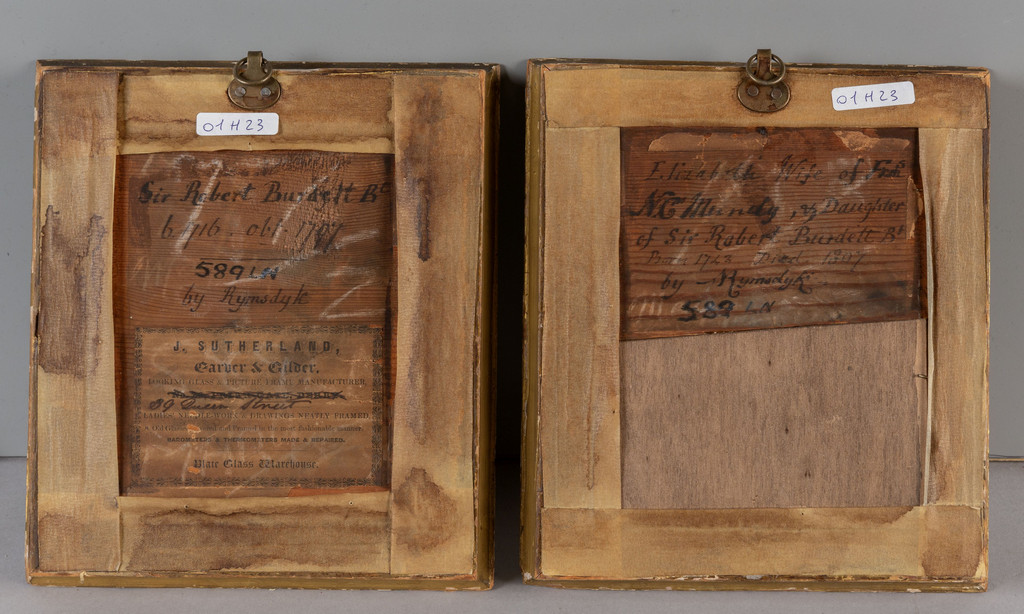 01H23
Sir Robert Burdett Bt
b. 1716. obt. 1797
589 LN
by Rymsdyk
J. SUTHERLAND,
Carver & Gilder,
LOOKING GLASS & PICTURE FRAME MANUFACTURER,
39 Queen Street
LADIES NEEDLE-WORK & DRAWINGS NEATLY FRAMED,
in the most fashionable manner.
BAROMETERS & THERMOMETERS MADE & REPAIRED.
Plate Glass Warehouse.
01H23
Elizabeth Wife of Frs
N.C. Mundy, & Daughter
of Sir Robert Burdett Bt
Died 1807
by Rymsdyk
589 LN